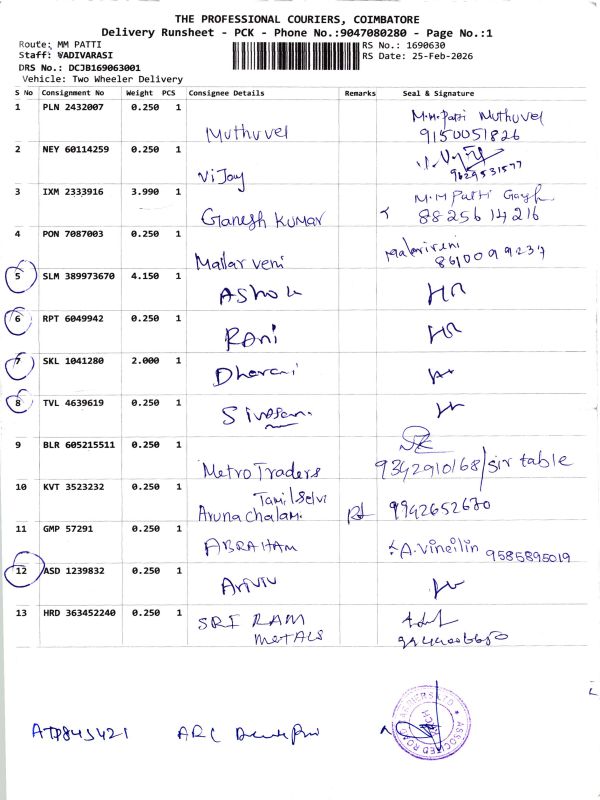 THE PROFESSIONAL COURIERS, COIMBATORE
Delivery Runsheet - PCK - Phone No.:9047080280 - Page No.:1
Route: MM PATTI RS No.: 1690630
Staff: VADIVARASI RS Date: 25-Feb-2026
DRS No.: DCJB169063001
Vehicle: Two Wheeler Delivery
S No Consignment No Weight PCS Consignee Details Remarks Seal & Signature
1 PLN 2432007 0.250 1 Muthuvel M.M.Patti Muthuvel
9150051826
2 NEY 60114259 0.250 1 Vijay
9629531577
3 IXM 2333916 3.990 1 Ganesh Kumar M.M Patti
88256 14216
4 PON 7087003 0.250 1 Mallar veni
8610099237
5 SLM 389973670 4.150 1 Ashok
6 RPT 6049942 0.250 1 Rani
7 SKL 1041280 2.000 1 Dharani
8 TVL 4639619 0.250 1
9 BLR 605215511 0.250 1 Metro Traders 9342910168/sir table
10 KVT 3523232 0.250 1 Tamil Selvi
Aruna Chalam. 9942652670
11 GMP 57291 0.250 1 ABRAHAM A. Vineilin 9585895019
12 ASD 1239832 0.250 1
13 HRD 363452240 0.250 1 SRI RAM
METALS
ARC